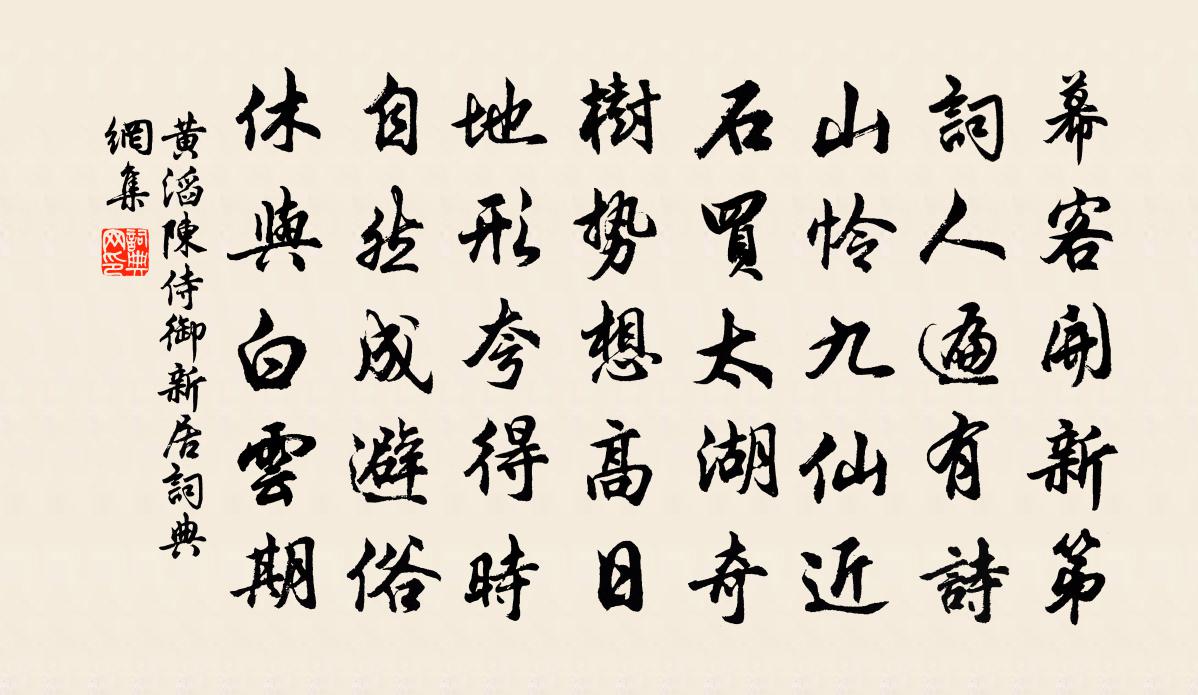 幕客開新第
詞人遍有詩
山憐九仙近
石買太湖奇
樹勢想高日
地形夸得時
自然成避俗
休與白雲期
黃滔陳侍御新居詞典
網集
詞典
网印